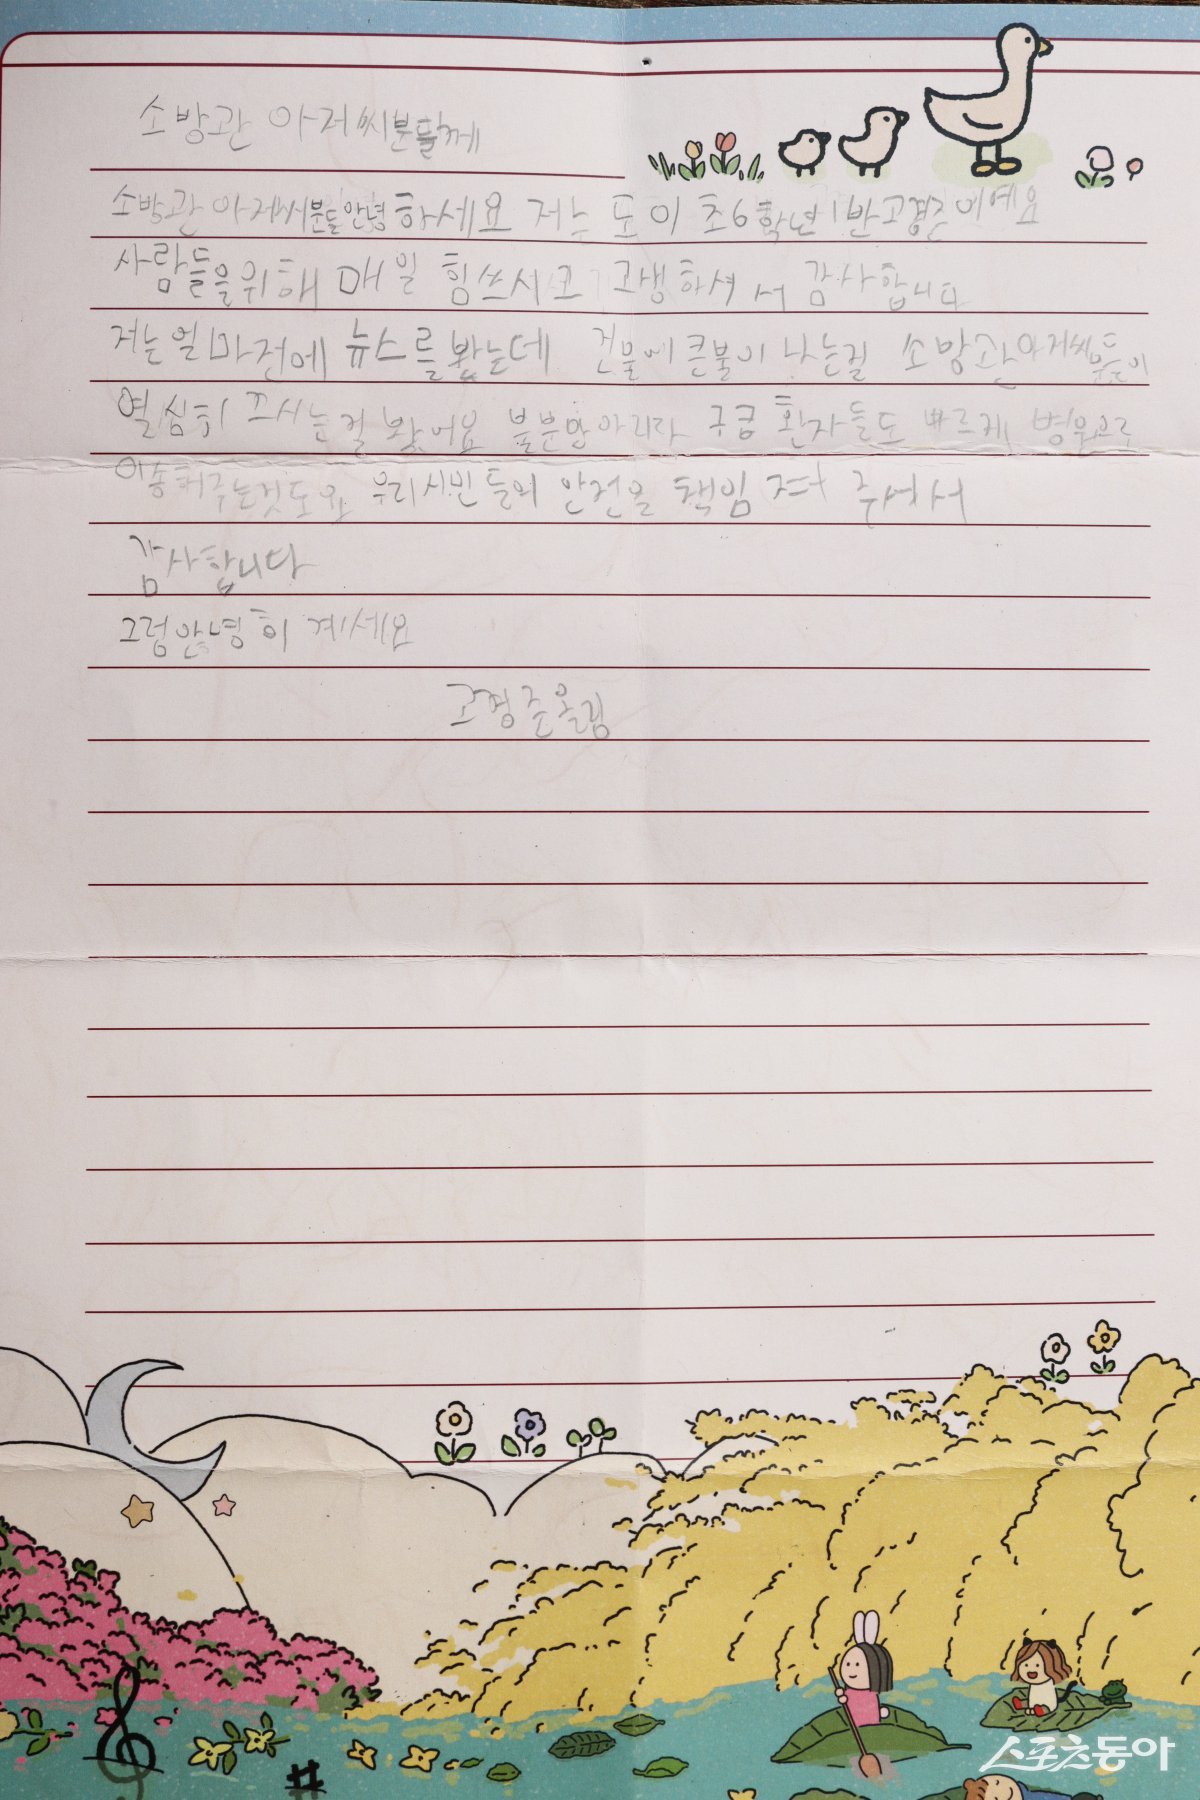 소방관 아저씨분들께
소방관 아저씨분들안녕 하세요 저는 도이초6학년1반고경준이에요
사람들을위해 매일 힘쓰시고 고생하셔서 감사합니다
저는얼마전에 뉴스를봤는데 건물에큰불이 나는걸 소방관아저씨분들이
열심히 끄시는걸 봤어요 불뿐만아니라 구급 환자들도 빠르게 병원으로
이송해주는것도요 우리시민들의 안전을 책임 져 주셔서
감사합니다
그럼안녕히 계세요
고경준올림
스포츠동아